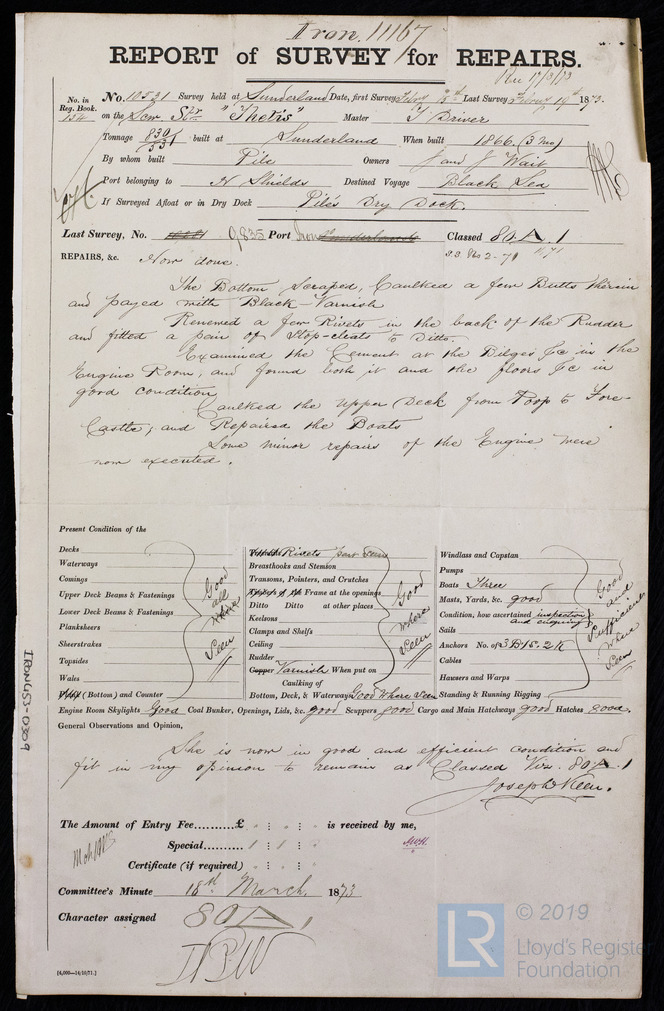 Iron 11167
REPORT of SURVEY for REPAIRS.
Rec 17/3/73
No. in Reg. Book. 154
No. 10531 Survey held at Sunderland Date, first Survey Febry 15th Last Survey Febry 19th 1873.
on the Scw Str "Thetis" Master J Driver
Tonnage 830 / 531 built at Sunderland When built 1866 (3 mo)
By whom built Pile Owners J and J Wait
Port belonging to N Shields Destined Voyage Black Sea
If Surveyed Afloat or in Dry Dock Pile's Dry Dock.
Last Survey, No. 9835 Port Iron Classed 80 A. 1
S.S. No 2-71 11,71
REPAIRS, &c. Now done.
The Bottom Scraped, Caulked a few Butts therein
and payed with Black-Varnish
Renewed a few Rivets in the back of the Rudder
and fitted a pair of Stop-cleats to Ditto.
Examined the Cement at the Bilges &c in the
Engine Room, and found both it and the floors &c in
good condition
Caulked the Upper Deck from Poop to Fore-
Castle; and Repaired the Boats
Some minor repairs of the Engine were
now executed.
Present Condition of the
Decks
Waterways
Comings
Upper Deck Beams & Fastenings
Lower Deck Beams & Fastenings
Planksheers
Sheerstrakes
Topsides
Wales
(Bottom) and Counter
Good all where Seen
Rivets part seen
Breasthooks and Stemson
Transoms, Pointers, and Crutches
Frame at the openings
Ditto Ditto at other places
Keelsons
Clamps and Shelfs
Ceiling
Rudder
Copper Varnish When put on
Caulking of
Bottom, Deck, & Waterways Good Where Seen
Good where Seen
Windlass and Capstan
Pumps
Boats Three
Masts, Yards, &c. good
Condition, how ascertained inspection and enquiry
Sails
Anchors No. of 3 B 1 S. 2 K
Cables
Hawsers and Warps
Standing & Running Rigging
Good and Sufficient where Seen
Engine Room Skylights Good Coal Bunker, Openings, Lids, &c. good Scuppers good Cargo and Main Hatchways good Hatches good.
General Observations and Opinion,
She is now in good and efficient condition and
fit in my opinion to remain as Classed Viz. 80 A. 1
Joseph Keen.
The Amount of Entry Fee..........£ : : is received by me,
Special..........
Certificate (if required)
Committee's Minute 18th March 1873
Character assigned 80 A 1
[4,000—14/10/71.]
IRON 653-0309
LR
© 2019
Lloyd's Register
Foundation